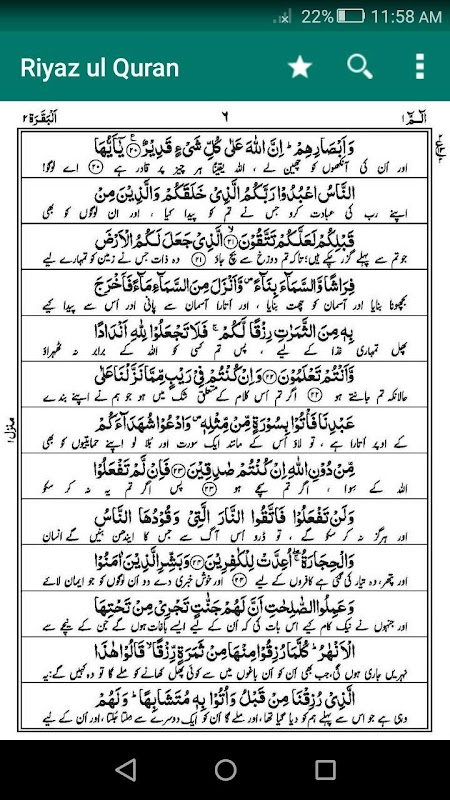 22% 11:58 AM
Riyaz ul Quran
الٓمّٓ ١ ٦ اَلْبَقَرَة ٢
وَاَبْصَارِهِمْ ؕ اِنَّ اللّٰهَ عَلٰى كُلِّ شَىْءٍ قَدِيْرٌ ﴿٢٠﴾ يٰۤاَيُّهَا
اور اُن کی آنکھوں کو چھین لے ، اللہ یقیناً ہر چیز پر قادر ہے ۲۰ اے لوگو!
النَّاسُ اعْبُدُوْا رَبَّكُمُ الَّذِىْ خَلَقَكُمْ وَالَّذِيْنَ مِنْ
اپنے رب کی عبادت کرو جس نے تم کو پیدا کیا ، اور ان لوگوں کو بھی
قَبْلِكُمْ لَعَلَّكُمْ تَتَّقُوْنَ ﴿٢١﴾ الَّذِىْ جَعَلَ لَكُمُ الْاَرْضَ
جو تم سے پہلے گزر چکے ہیں؛ تاکہ تم دوزخ سے بچ جاؤ ۲۱ وہ ذات جس نے زمین کو تمہارے لیے
فِرَاشًا وَّالسَّمَآءَ بِنَآءً ۪ وَّاَنْزَلَ مِنَ السَّمَآءِ مَآءً فَاَخْرَجَ
بچھونا بنایا اور آسمان کو چھت بنایا ، اور اُتارا آسمان سے پانی اور اس سے پیدا کیے
بِهٖ مِنَ الثَّمَرٰتِ رِزْقًا لَّكُمْ ۚ فَلَا تَجْعَلُوْا لِلّٰهِ اَنْدَادًا
پھل تمہاری غذا کے لیے ، پس تم کسی کو اللہ کے برابر نہ ٹھہراؤ
وَّاَنْتُمْ تَعْلَمُوْنَ ﴿٢٢﴾ وَاِنْ كُنْتُمْ فِىْ رَيْبٍ مِّمَّا نَزَّلْنَا عَلٰى
حالانکہ تم جانتے ہو ۲۲ اگر تم اس کلام کے متعلق شک میں ہو جو ہم نے اپنے بندے
عَبْدِنَا فَاْتُوْا بِسُوْرَةٍ مِّنْ مِّثْلِهٖ ۪ وَادْعُوْا شُهَدَآءَكُمْ
کے اوپر اُتارا ہے ، تو لاؤ اُس کے مانند ایک سورت اور بُلا لو اپنے حمایتیوں کو بھی
مِّنْ دُوْنِ اللّٰهِ اِنْ كُنْتُمْ صٰدِقِيْنَ ﴿٢٣﴾ فَاِنْ لَّمْ تَفْعَلُوْا
اللہ کے سِوا ، اگر تم سچے ہو ۲۳ پس اگر تم یہ نہ کر سکو
وَلَنْ تَفْعَلُوْا فَاتَّقُوا النَّارَ الَّتِىْ وَقُوْدُهَا النَّاسُ
اور ہرگز نہ کر سکو گے ، تو ڈرو اُس آگ سے جس کا ایندھن بنیں گے انسان
وَالْحِجَارَةُ ۖۚ اُعِدَّتْ لِلْكٰفِرِيْنَ ﴿٢٤﴾ وَبَشِّرِ الَّذِيْنَ اٰمَنُوْا
اور پتھر، وہ تیار کی گئی ہے کافروں کے لیے ۲۴ اور خوش خبری دے دو اُن لوگوں کو جو ایمان لائے
وَعَمِلُوا الصّٰلِحٰتِ اَنَّ لَهُمْ جَنّٰتٍ تَجْرِىْ مِنْ تَحْتِهَا
اور جنہوں نے نیک کام کیے اس بات کی کہ اُن کے لیے ایسے باغات ہوں گے جن کے نیچے سے
الْاَنْهٰرُ ؕ كُلَّمَا رُزِقُوْا مِنْهَا مِنْ ثَمَرَةٍ رِّزْقًا ۙ قَالُوْا هٰذَا
نہریں جاری ہوں گی، جب بھی اُن کو اُن باغوں میں سے کوئی پھل کھانے کو ملے گا تو وہ کہیں گے: یہ
الَّذِىْ رُزِقْنَا مِنْ قَبْلُ ۙ وَاُتُوْا بِهٖ مُتَشَابِهًا ؕ وَلَهُمْ
وہی ہے جو اس سے پہلے ہم کو دیا گیا تھا، اور ملے گا اُن کو ایک دوسرے سے ملتا جُلتا، اور اُن کے لیے
منزل ١